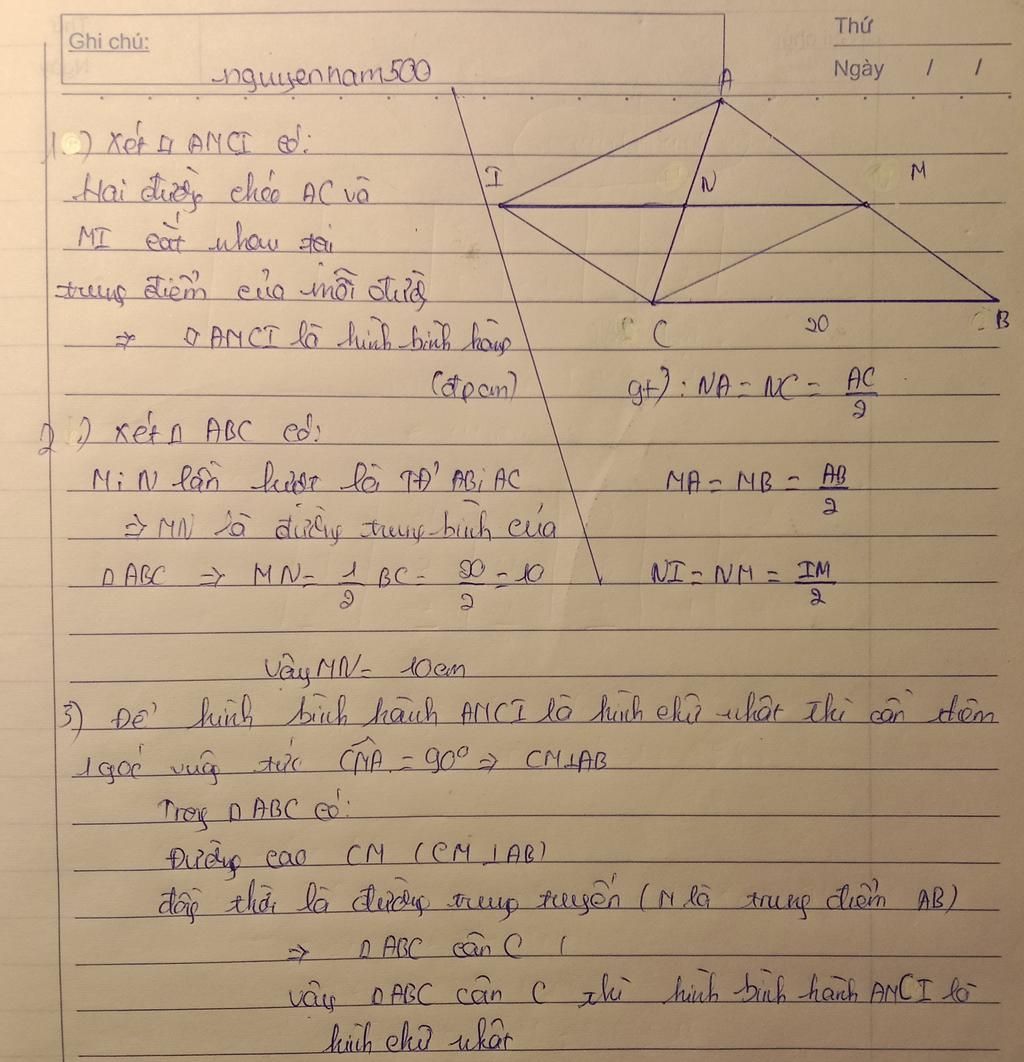 Ghi chú:
Thứ
Ngày / /
nguyennam500
A
I
N
M
C
20
B
1) Xét □ AMCI có:
Hai đường chéo AC và
MI cắt nhau tại
trung điểm của mỗi đường
⇒ □ AMCI là hình bình hàng
(đpcm)
gt) : NA = NC = AC/2
2) Xét Δ ABC có:
M; N lần lượt là TĐ' AB; AC
MA = MB = AB/2
⇒ MN là đường trung bình của
ΔABC ⇒ MN = 1/2 BC = 20/2 = 10
NI = NM = IM/2
Vậy MN = 10cm
3) Để hình bình hành AMCI là hình chữ nhật thì cần thêm
1 góc vuông tức CMA = 90° ⇒ CM⊥AB
Trong Δ ABC có:
Đường cao CM (CM ⊥ AB)
đồng thời là đường trung tuyến (M là trung điểm AB)
⇒ Δ ABC cân C (
Vậy Δ ABC cân C thì hình bình hành AMCI là
hình chữ nhật